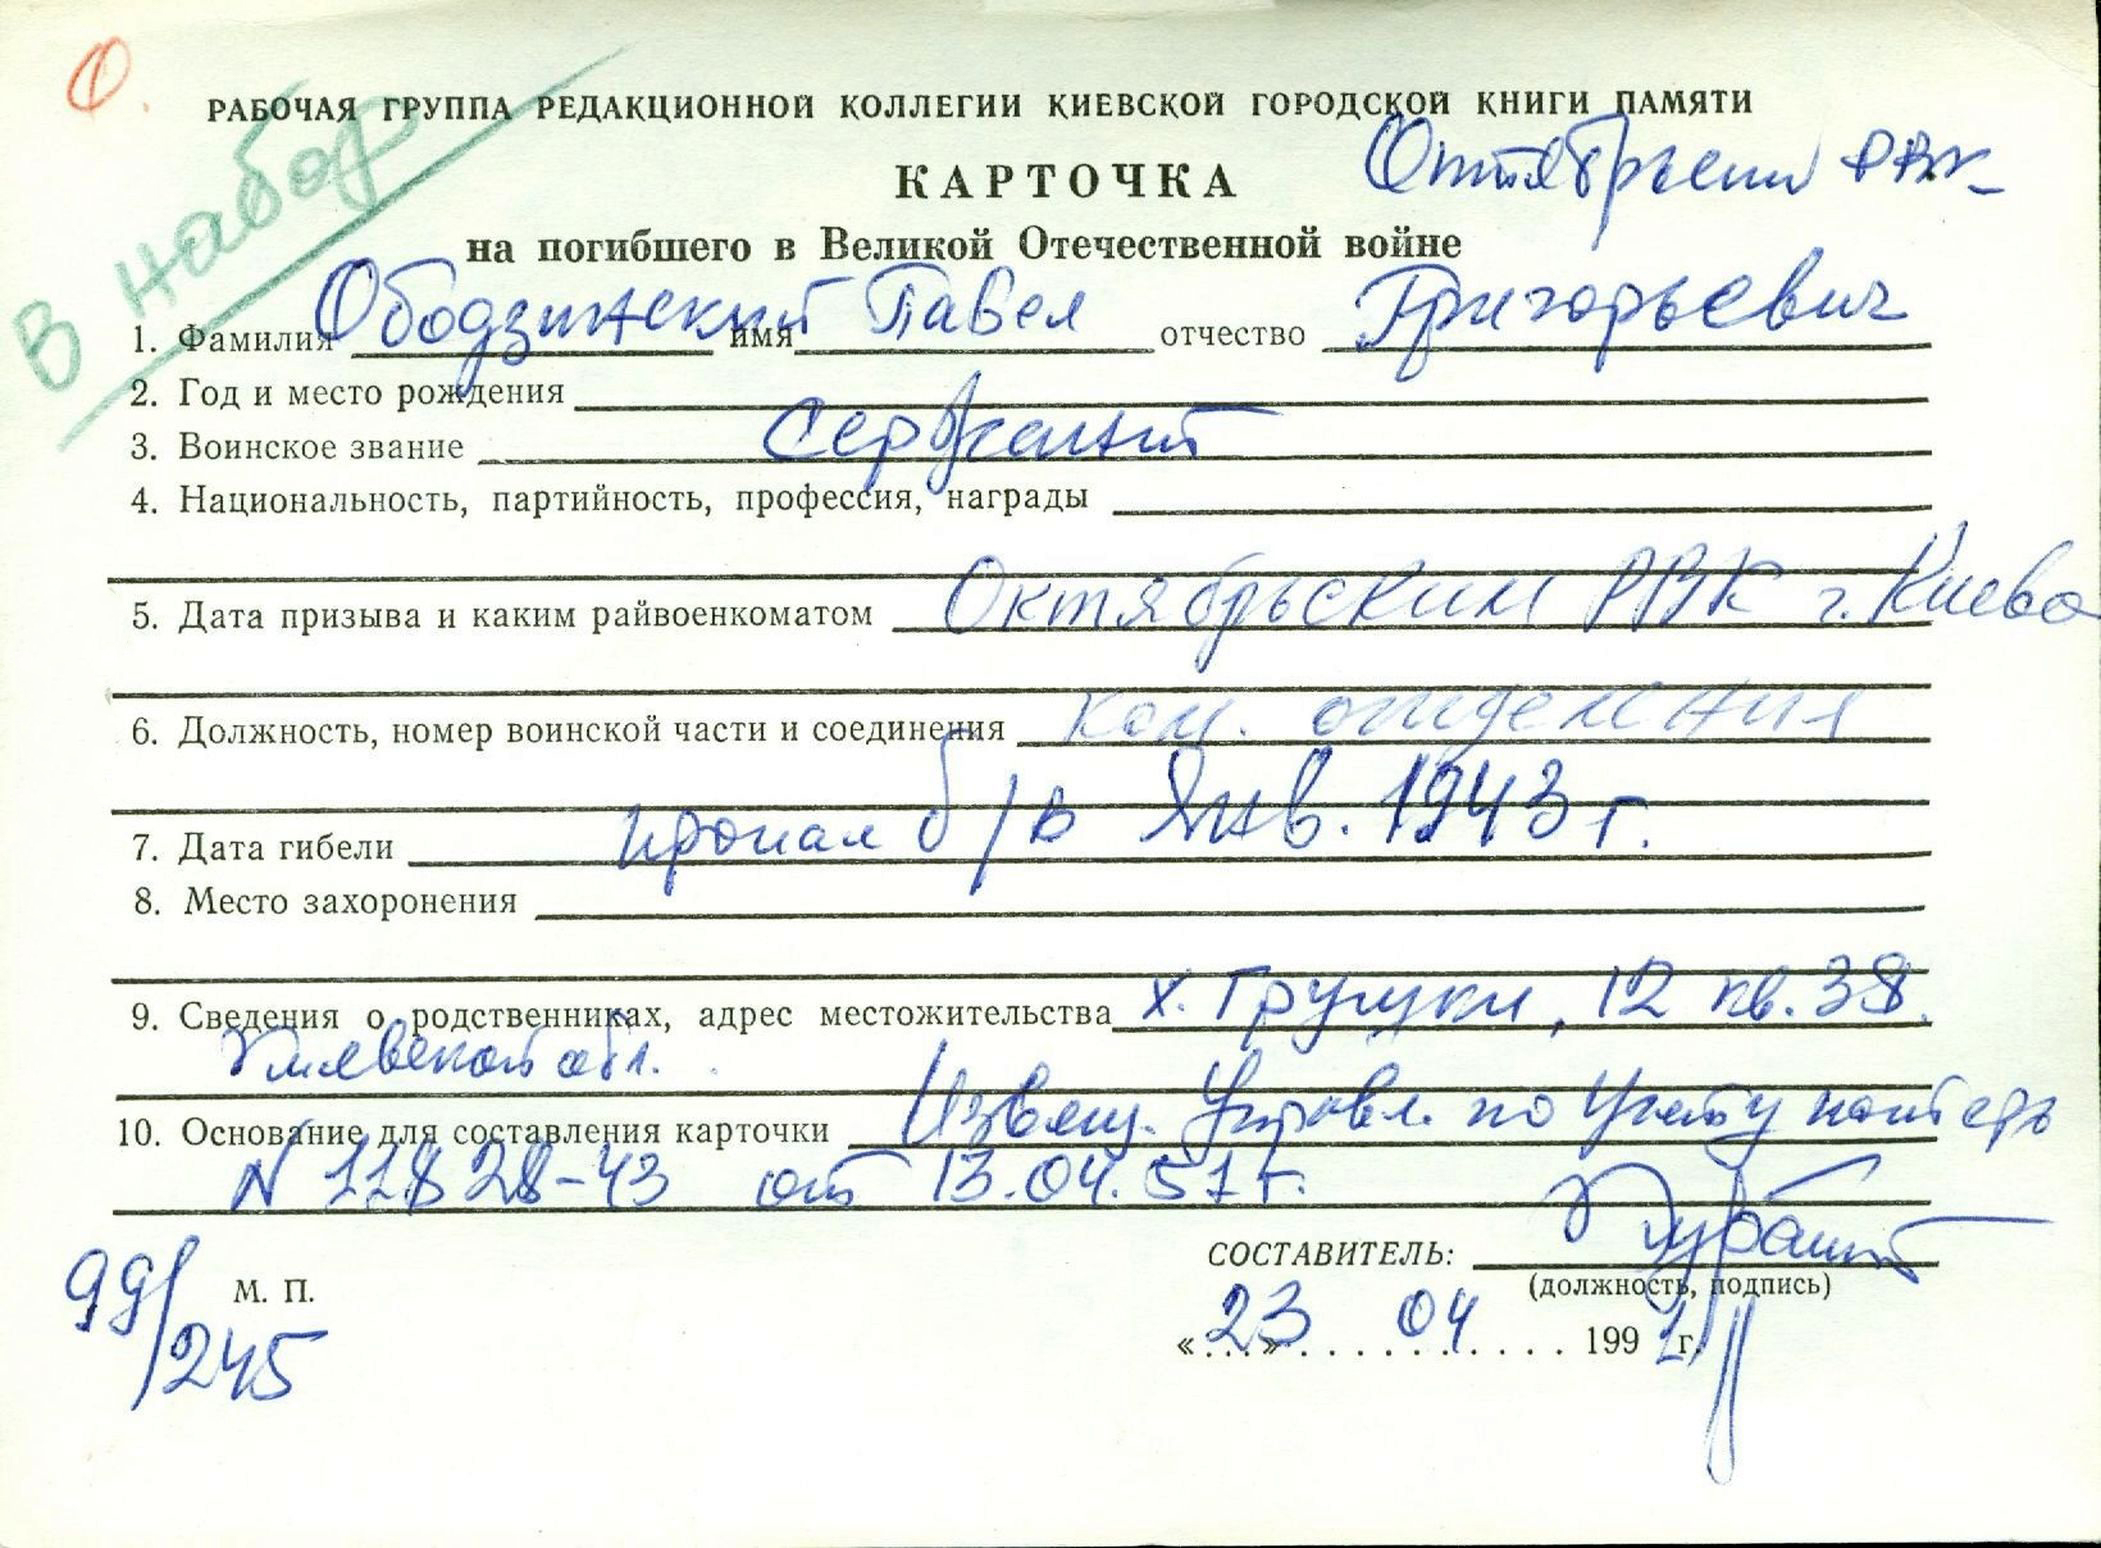 О.
В набор
РАБОЧАЯ ГРУППА РЕДАКЦИОННОЙ КОЛЛЕГИИ КИЕВСКОЙ ГОРОДСКОЙ КНИГИ ПАМЯТИ
КАРТОЧКА Октябрьский РВК
на погибшего в Великой Отечественной войне
1. Фамилия Ободзинский имя Павел отчество Григорьевич
2. Год и место рождения
3. Воинское звание Сержант
4. Национальность, партийность, профессия, награды
5. Дата призыва и каким райвоенкоматом Октябрьским РВК г. Киева
6. Должность, номер воинской части и соединения ком. отделения
7. Дата гибели пропал б/в Янв. 1943 г.
8. Место захоронения
9. Сведения о родственниках, адрес местожительства х. Грушки, 12 кв. 38.
Киевской обл.
10. Основание для составления карточки Извещ. Управл. по Учету потерь
N 11828-43 от 13.04.51 г.
СОСТАВИТЕЛЬ:
(должность, подпись)
99/245 М. П.
«23» 04 1991 г.